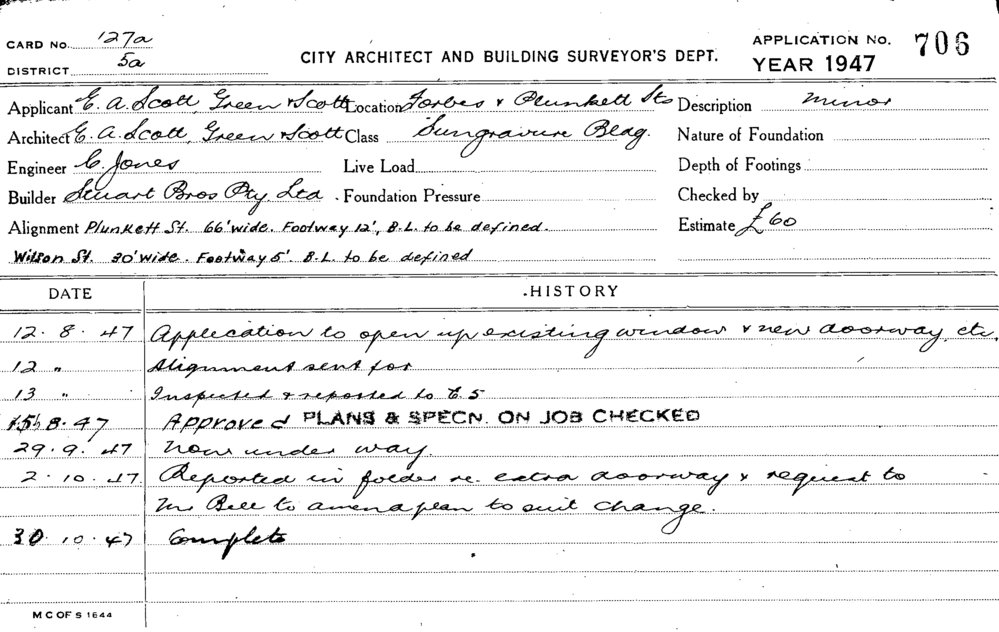 CARD No. 127a
DISTRICT 5a
CITY ARCHITECT AND BUILDING SURVEYOR'S DEPT.
APPLICATION No. 706
YEAR 1947
Applicant E. A. Scott, Green & Scott Location Forbes & Plunkett Sts Description Minor
Architect E. A. Scott, Green & Scott Class Sungravure Bldg. Nature of Foundation
Engineer C. Jones Live Load Depth of Footings
Builder Stuart Bros Pty. Ltd. Foundation Pressure Checked by
Alignment Plunkett St. 66' wide. Footway 12', B.L. to be defined. Estimate £60
Wilson St. 30' wide. Footway 5' B.L. to be defined
DATE HISTORY
12. 8. 47 Application to open up existing window & new doorway, etc.
12 " Alignment sent for
13 " Inspected & reported to C.S
15 8. 47 Approved PLANS & SPECN. ON JOB CHECKED
29. 9. 47 Now under way
2. 10. 47. Reported in folder re. extra doorway & request to
Mr Bell to amend plan to suit change.
30. 10. 47 Complete
M C OF S 1644